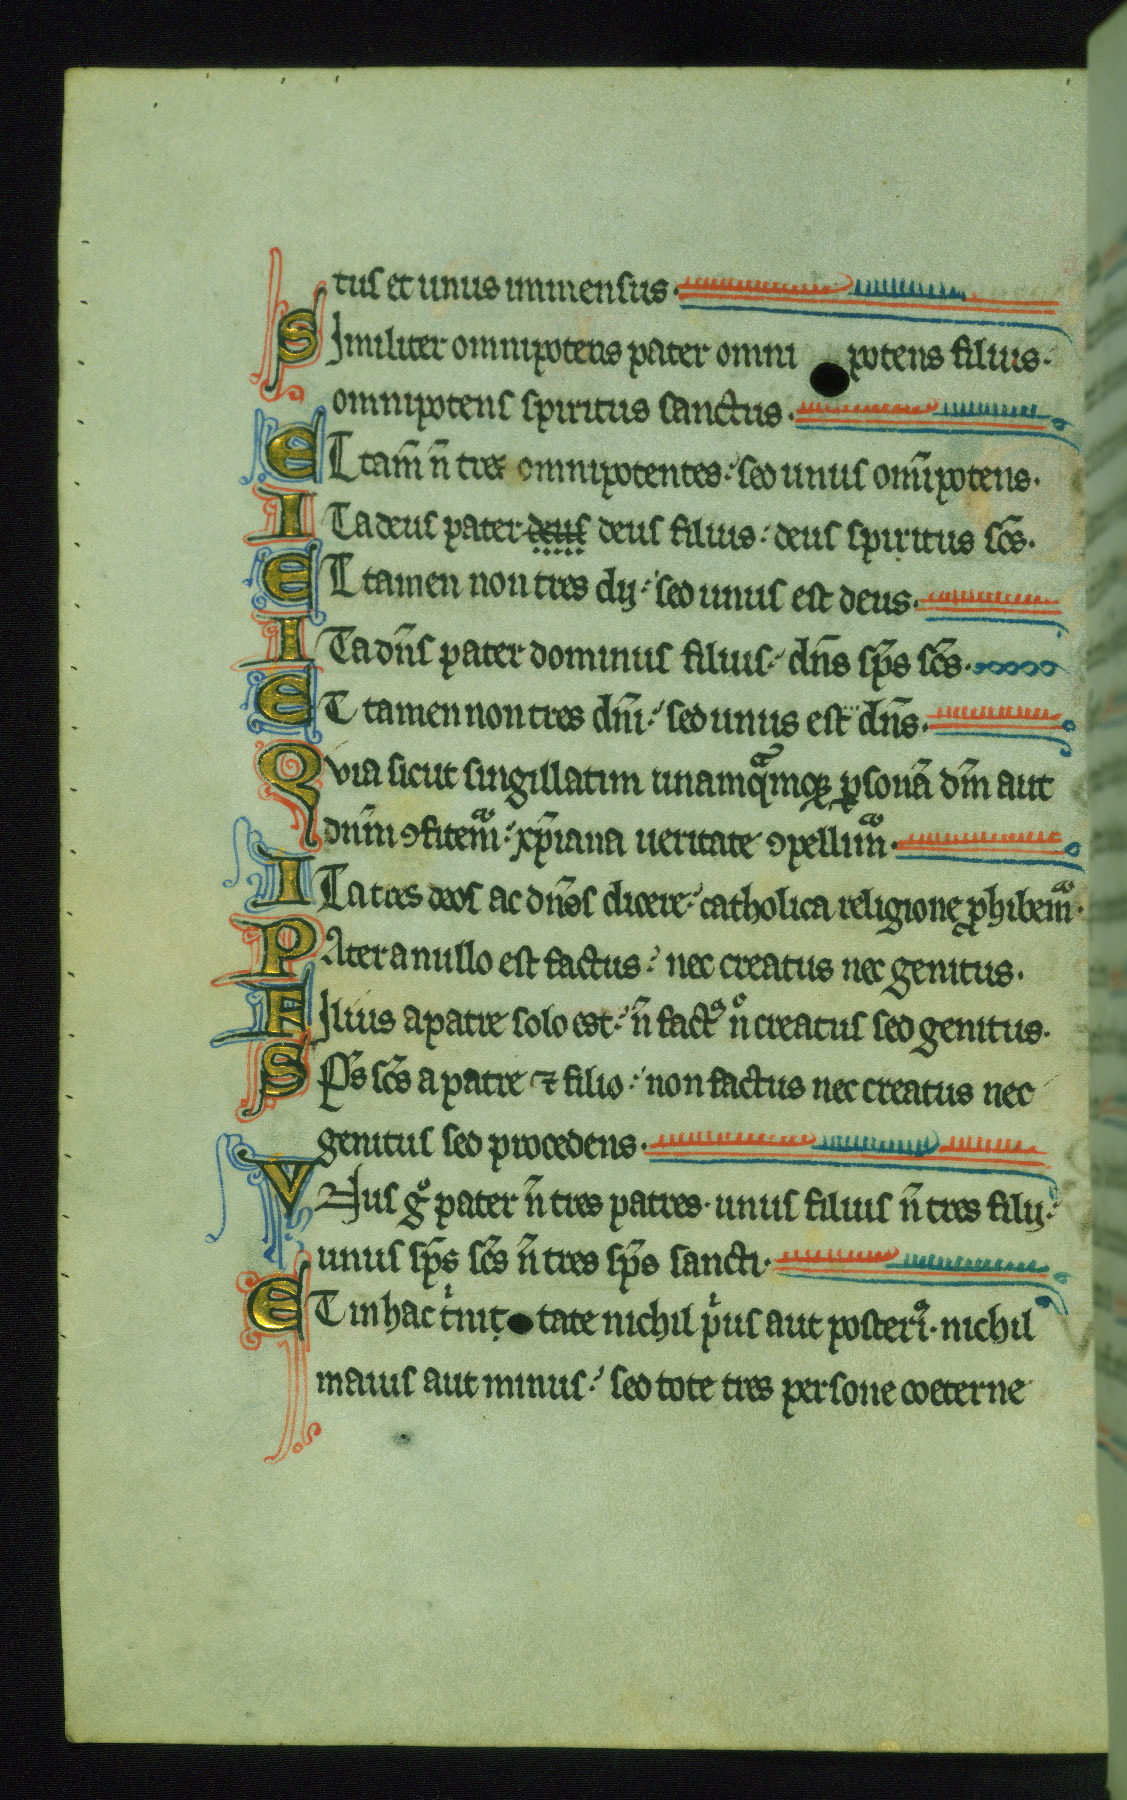 tus et unus inmensus.
Similiter omnipotens pater omni potens filius.
omnipotens spiritus sanctus.
ET tam̄ n̄ tres omnipotentes: sed unus om̄ipotens.
ITa deus pater deus deus filius: deus spiritus sc̄s.
ET tamen non tres dij: sed unus est deus.
ITa dn̄s pater dominus filius: dn̄s sp̄s sc̄s.
ET tamen non tres dn̄i: sed unus est dn̄s.
Quia sicut singillatim unamqᵃmqꝫ ꝑsonā dm̄ aut
dnm̄ ꝯfitem̄: xp̄iana ueritate ꝯpellim̄.
ITa tres deos ac dn̄os dicere: catholica religione ꝓhibem̄.
PAter a nullo est factus: nec creatus nec genitus.
FIlius a patre solo est: n̄ factꝰ n̄ creatus sed genitus.
SPs̄ sc̄s a patre ⁊ filio: non factus nec creatus nec
genitus sed procedens.
VNus gͦ pater n̄ tres patres. unus filius n̄ tres filij:
unus sp̄s sc̄s n̄ tres sp̄s sancti.
ET in hac tͥnit tate nichil pͥus aut posteriꝰ. nichil
maius aut minus: sed tote tres persone coeterne